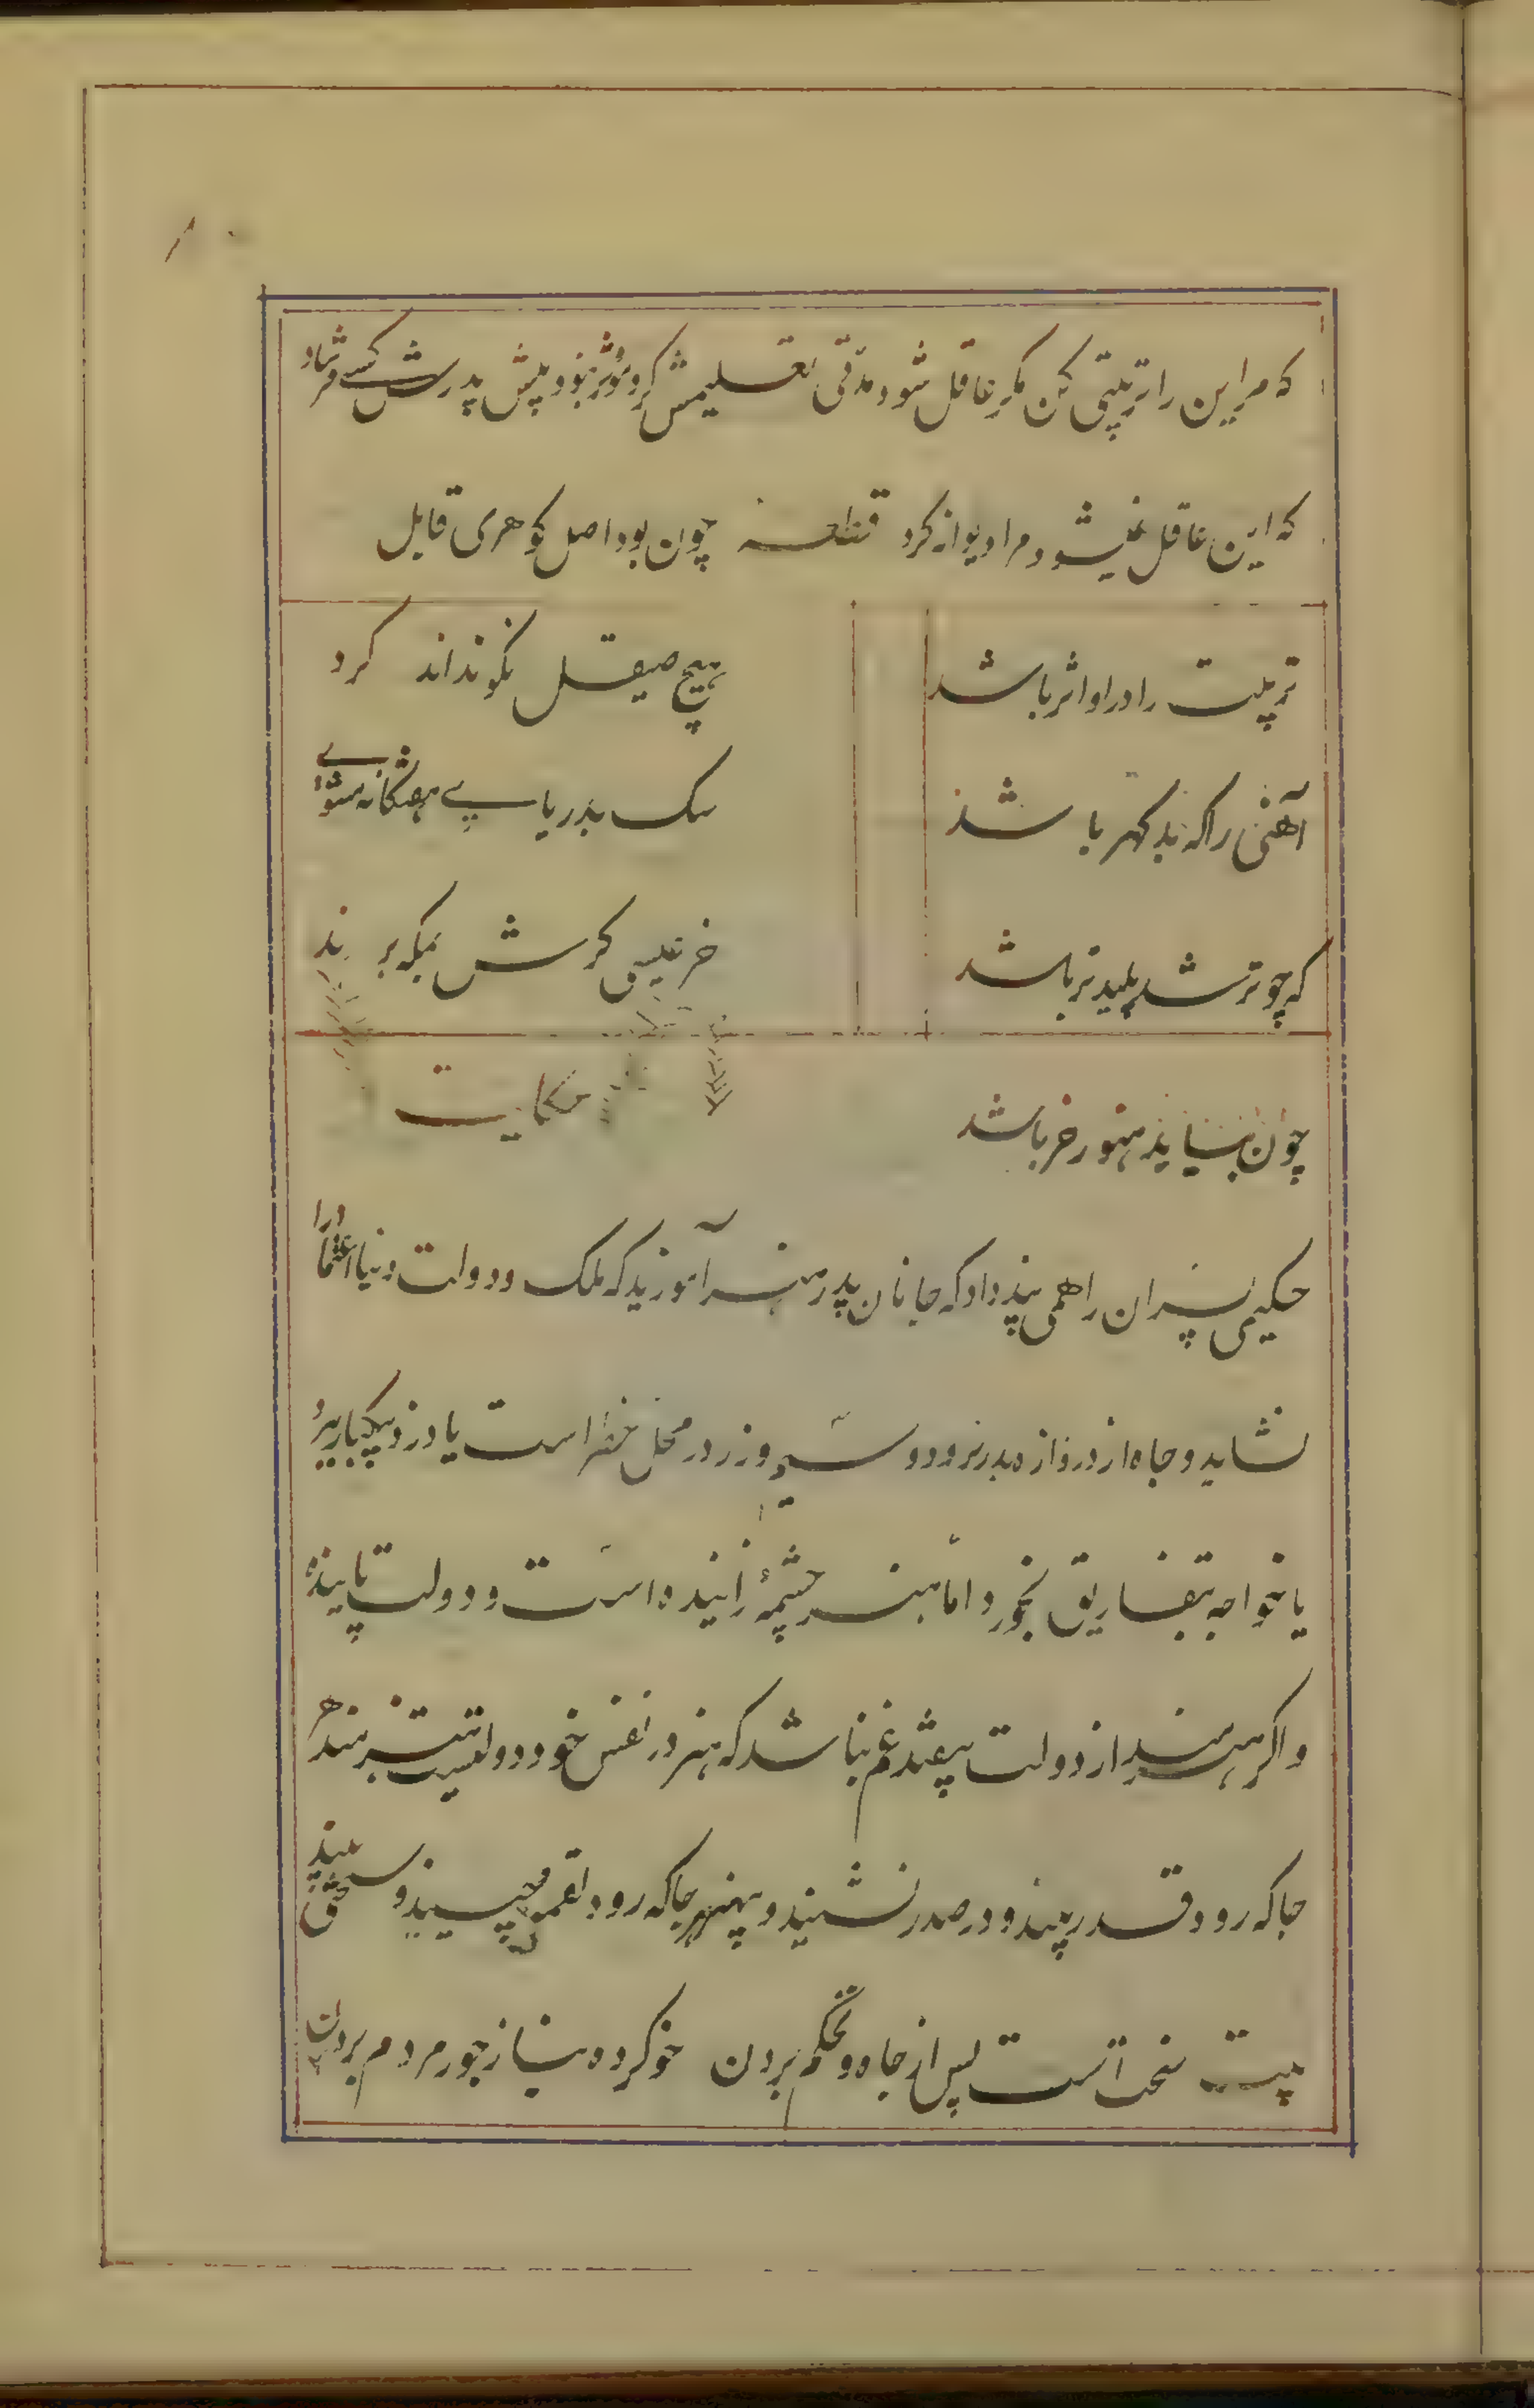 که مر این را تربیتی کن مکر عاقل شود مدتی تعلیمش کرد مؤثر نبود پیش پدرش کسی فرستاد
که این عاقل نمیشود مرا دیوانه کرد قطعه چون بود اصل کوهری قابل
تربیت را در او اثر باشد هیچ صیقل نکو نداند کرد
آهنی را که بد کهر باشد سک بدریای هفتکانه بشوی
که چو تر شد پلیدتر باشد خر عیسی کرش بمکه برند
چون بیاید هنوز خر باشد حکایت
حکیمی پسران را همی پند داد که جانان پدر هنر آموزید که ملک و دولت دنیا اعتماد را
نشاید و جاه از دروازه بدر نرود و سیم و زر در محل خطر است یا دزد بیکبار ببرد
یا خواجه بتفاریق بخورد اما هنر چشمهٔ زاینده است و دولت پاینده
و اکر هنرمند از دولت بیفتد غم نباشد که هنر در نفس خود دولتیست هنرمند هر
جا که رود قدر بیند و در صدر نشیند و بیهنر هر جا که رود لقمه چیند و سختی بیند
بیت سخت است پس از جاه و تحکم بردن خو کرده بناز جور مردم بردن